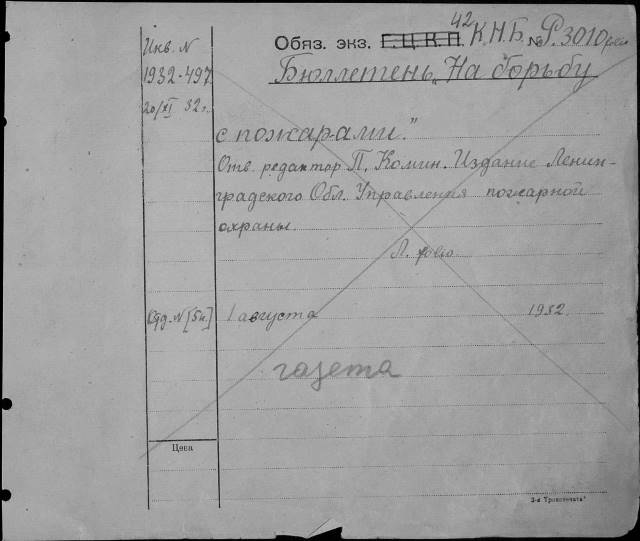 42
Обяз. экз. Г.Ц.К.П. К.Н.Б. № Р.3010
Инв. N
1932-497
20/XI 32 г.
Бюллетень "На борьбу
с пожарами."
Отв. редактор П. Комин. Издание Ленин-
градского Обл. Управления пожарной
охраны.
Л. folio
Отд. N [5и.] 1 августа 1932
газета
Цена
3-я Тренпечать"